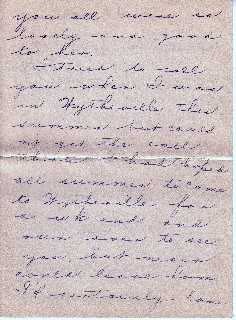 you all were so
lovely and good
to her.
I tried to call
you when I was
in Wytheville this
summer but could
not get the call
through. I had hoped
all summer to come
to Wytheville for
a wk end and
run over to see
you, but never
could leave home